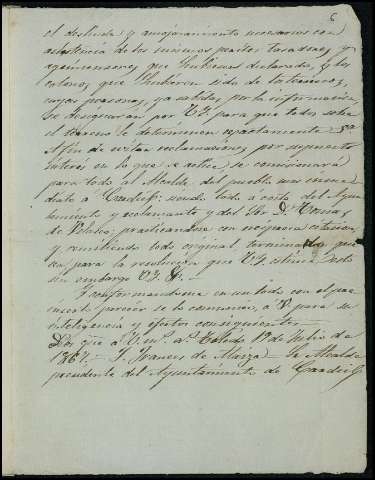 6
el deslinde y amojonamiento necesarios con
asistencia de los mismos peritos tasadores y
agrimensores que hubiesen declarado, y los
colonos que hubieran sido de la
cuyas personas, ya sabidas por la informacion,
se designaran por V.S. para que todos sobre
el terreno lo determinen exactamente. 5ª
Afin de evitar reclamaciones por supuesto
interés en lo que se actúe, se comisionará
para todo al Alcalde del pueblo mas inme-
diato á siendo todo á costa del Ayun-
tamiento y reclamante y del Sor Dn. Tomas
de Velasco; practicandose con recíproca citacion,
y remitiendo todo original, terminado que
sea, para la resolucion que V.S. estime. Esto
sin embargo V.S. &.=
Y conformandome en un todo con el pre-
inserto parecer se lo comunico á V. para su
inteligencia y efectos consiguientes.
Dios gue á V. ms. as. Toledo 1º de Julio de
1867.= Sr Alcalde
presidente del Ayuntamiento de